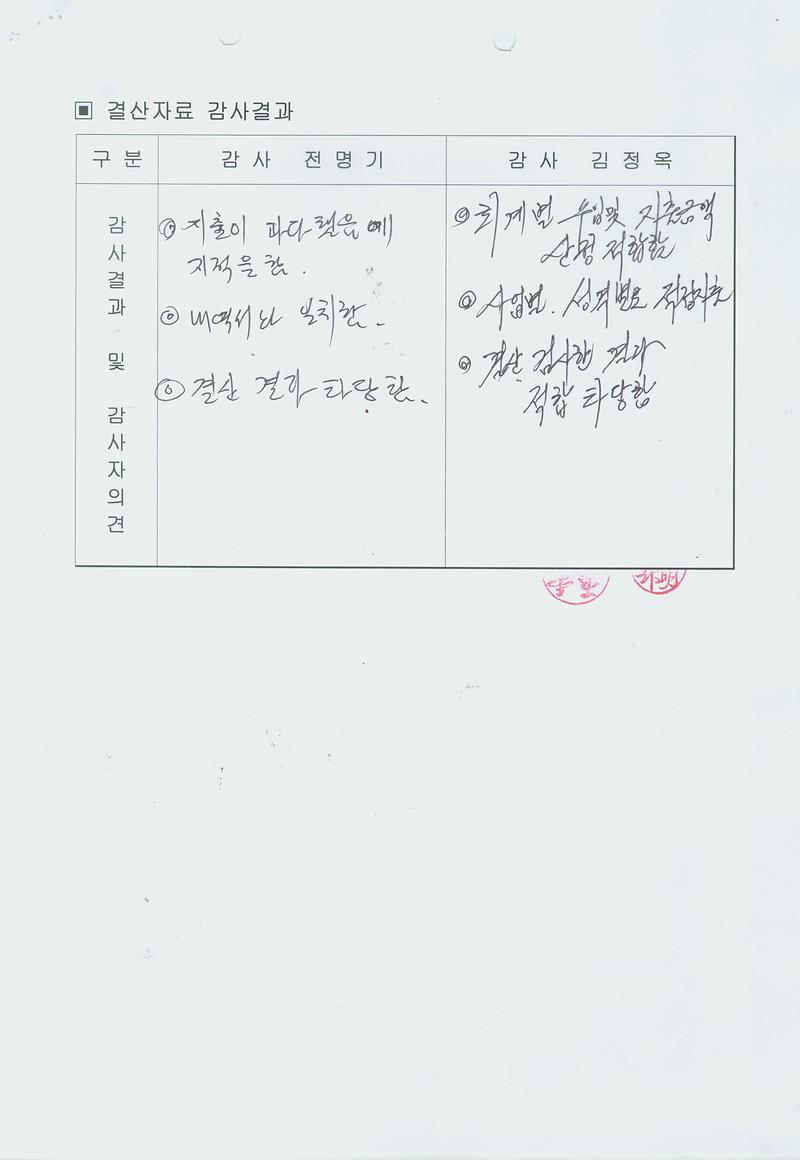 ▣ 결산자료 감사결과
구 분
감 사 전 명 기
감 사 김 정 옥
감사결과 및 감사자의견
◎ 지출이 과다했음에
지적을 함.
◎ 내역서와 일치함.
◎ 결산 결과 타당함.
◎ 회계별 수입및 지출금액
산정 적합함
◎ 사업별. 성격별로 적합지출
◎ 결산 검사한 결과
적합 타당함